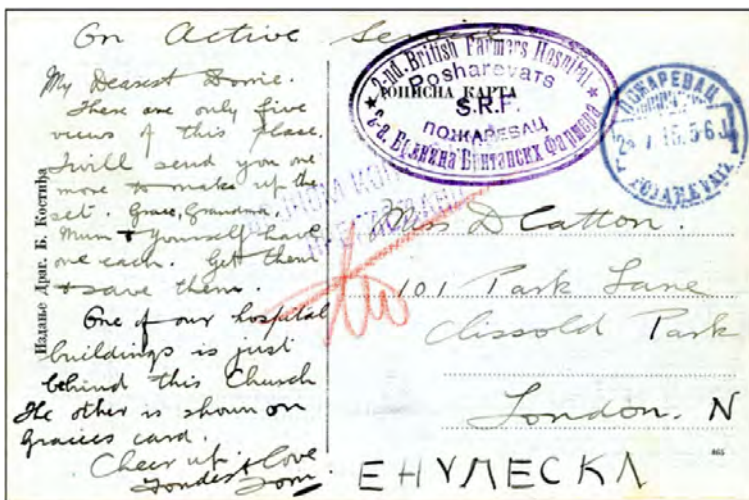 On Active Service
My Dearest Dorrie.
There are only five
views of this place.
I will send you one
more to make up the
set. Grace, Grandma,
Mum & yourself have
one each. Get them
& save them.
One of our hospital
buildings is just
behind this Church
The other is shown on
Gracies card.
Cheer up. Love
Fondest
Издање Драг. Б. Костића
2-nd. British Farmers Hospital
Posharevats
ДОПИСНА КАРТА
S.R.F.
ПОЖАРЕВАЦ
ПОЖАРЕВАЦ
Miss D Catton.
101 Park Lane
Clissold Park
London. N
ЕНУЛЕСКА